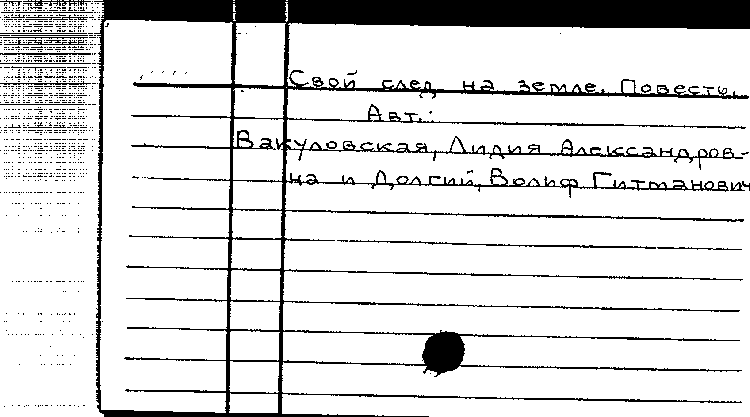 Свой след на земле. Повесть.
Авт.:
Вакуловская, Лидия Александров-
на и Долгий, Вольф Гитманович